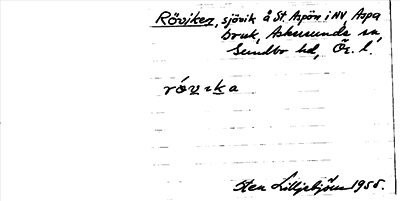 Röviken, sjövik å St. Aspön i NV, Aspa
bruk, Askersunds sn,
Sundbo hd, Ör. l.
róvika
Sten Lilljebjörn 1955.